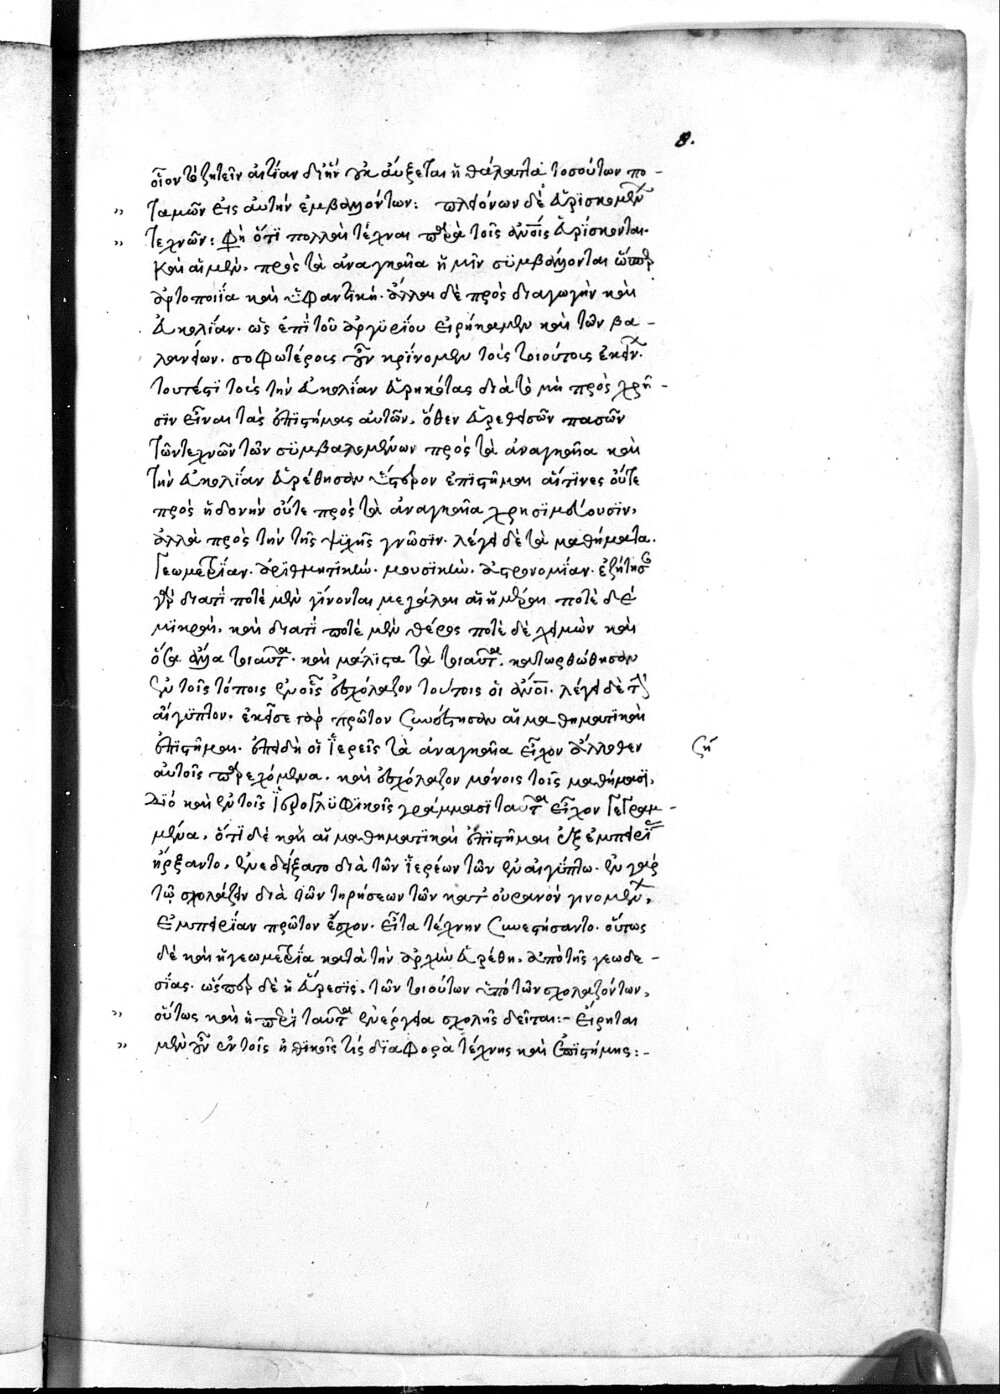 8.
οἷον τὸ ζητεῖν αἰτίαν δι' ἣν οὐκ αὔξεται ἡ θάλαττα τοσούτων πο-
ταμῶν εἰς αὐτὴν ἐμβαλόντων: πλειόνων δὲ εὑρισκομένων
τεχνῶν: Φη ὅτι πολλαὶ τέχναι παρὰ τοῖς ἀνοις εὑρίσκονται.
καὶ αἱ μὲν, πρὸς τὰ ἀναγκαῖα ἡμῖν συμβάλλονται ὥσπερ
ἀρτοποιΐα καὶ ὑφαντική. ἄλλαι δὲ πρὸς διαγωγὴν καὶ
εὐκολίαν. ὡς ἐπὶ τοῦ ἀργυρίου εἰρήκαμεν καὶ τῶν βα-
λανείων. σοφωτέροις οὖν κρίνομεν τοὺς τοιούτοις ἐκείνων.
τουτέστι τοὺς τὴν εὐκολίαν εὑρηκότας διὰ τὸ μὴ πρὸς χρῆ-
σιν εἶναι τὰς ἐπιστήμας αὐτῶν. ὅθεν εὑρεθεισῶν πασῶν
τῶν τεχνῶν τῶν συμβαλομένων πρὸς τὰ ἀναγκαῖα καὶ
τὴν εὐκολίαν εὑρέθησαν ὕστερον ἐπιστῆμαι αἵτινες οὔτε
πρὸς ἡδονὴν οὔτε πρὸς τὰ ἀναγκαῖα χρησιμεύουσιν,
ἀλλὰ πρὸς τὴν τῆς ψυχῆς γνῶσιν. λέγει δὲ τὰ μαθήματα.
Γεωμετρίαν. ἀριθμητικὴν. μουσικὴν. ἀστρονομίαν. ἐζήτησαν
γὰρ διατί ποτὲ μὲν γίνονται μεγάλαι αἱ ἡμέραι ποτὲ δὲ
μικραὶ, καὶ διατί ποτὲ μὲν θέρος ποτὲ δὲ χειμὼν καὶ
ὅσα ἄλλα τοιαῦτα. καὶ μάλιστα τὰ τοιαῦτα. κατωρθώθησαν
ἐν τοῖς τόποις ἐν οἷς ἐσχόλαζον τούτοις οἱ ἀνοι. λέγει δὲ τὴν
αἴγυπτον. ἐκεῖσε γὰρ πρῶτον συνέστησαν αἱ μαθηματικαὶ
ἐπιστῆμαι. ἐπειδὴ οἱ ἱερεῖς τὰ ἀναγκαῖα εἶχον ἄλλοθεν
αὐτοῖς παρεχόμενα. καὶ ἐσχόλαζον μόνοις τοῖς μαθήμασι.
Διὸ καὶ ἐν τοῖς ἱερογλυφικοῖς γράμμασι ταῦτα εἶχον γεγραμ-
μένα. ὅτι δὲ καὶ αἱ μαθηματικαὶ ἐπιστῆμαι ἐξ ἐμπειρίας
ἤρξαντο, ἐνεδείξατο διὰ τῶν ἱερέων τῶν ἐν αἰγύπτω. ἐν γὰρ
τῷ σχολάζειν διὰ τῶν τηρήσεων τῶν κατ' οὐρανόν γινομένων,
ἐμπειρίαν πρῶτον ἔσχον. εἶτα τέχνην συνεστήσαντο. οὕτως
δὲ καὶ ἡ γεωμετρία κατὰ τὴν ἀρχὴν εὑρέθη. ἀπὸ τῆς γεωδε-
σίας. ὥσπερ δὲ ἡ εὕρεσις, τῶν τοιούτων ὑπὸ τῶν σχολαζόντων,
οὕτως καὶ ἡ περὶ ταῦτα ἐνέργεια σχολῆς δεῖται:- Εἴρηται
μὲν οὖν ἐν τοῖς ἠθικοῖς τίς διαφορὰ τέχνης καὶ ἐπιστήμης:-